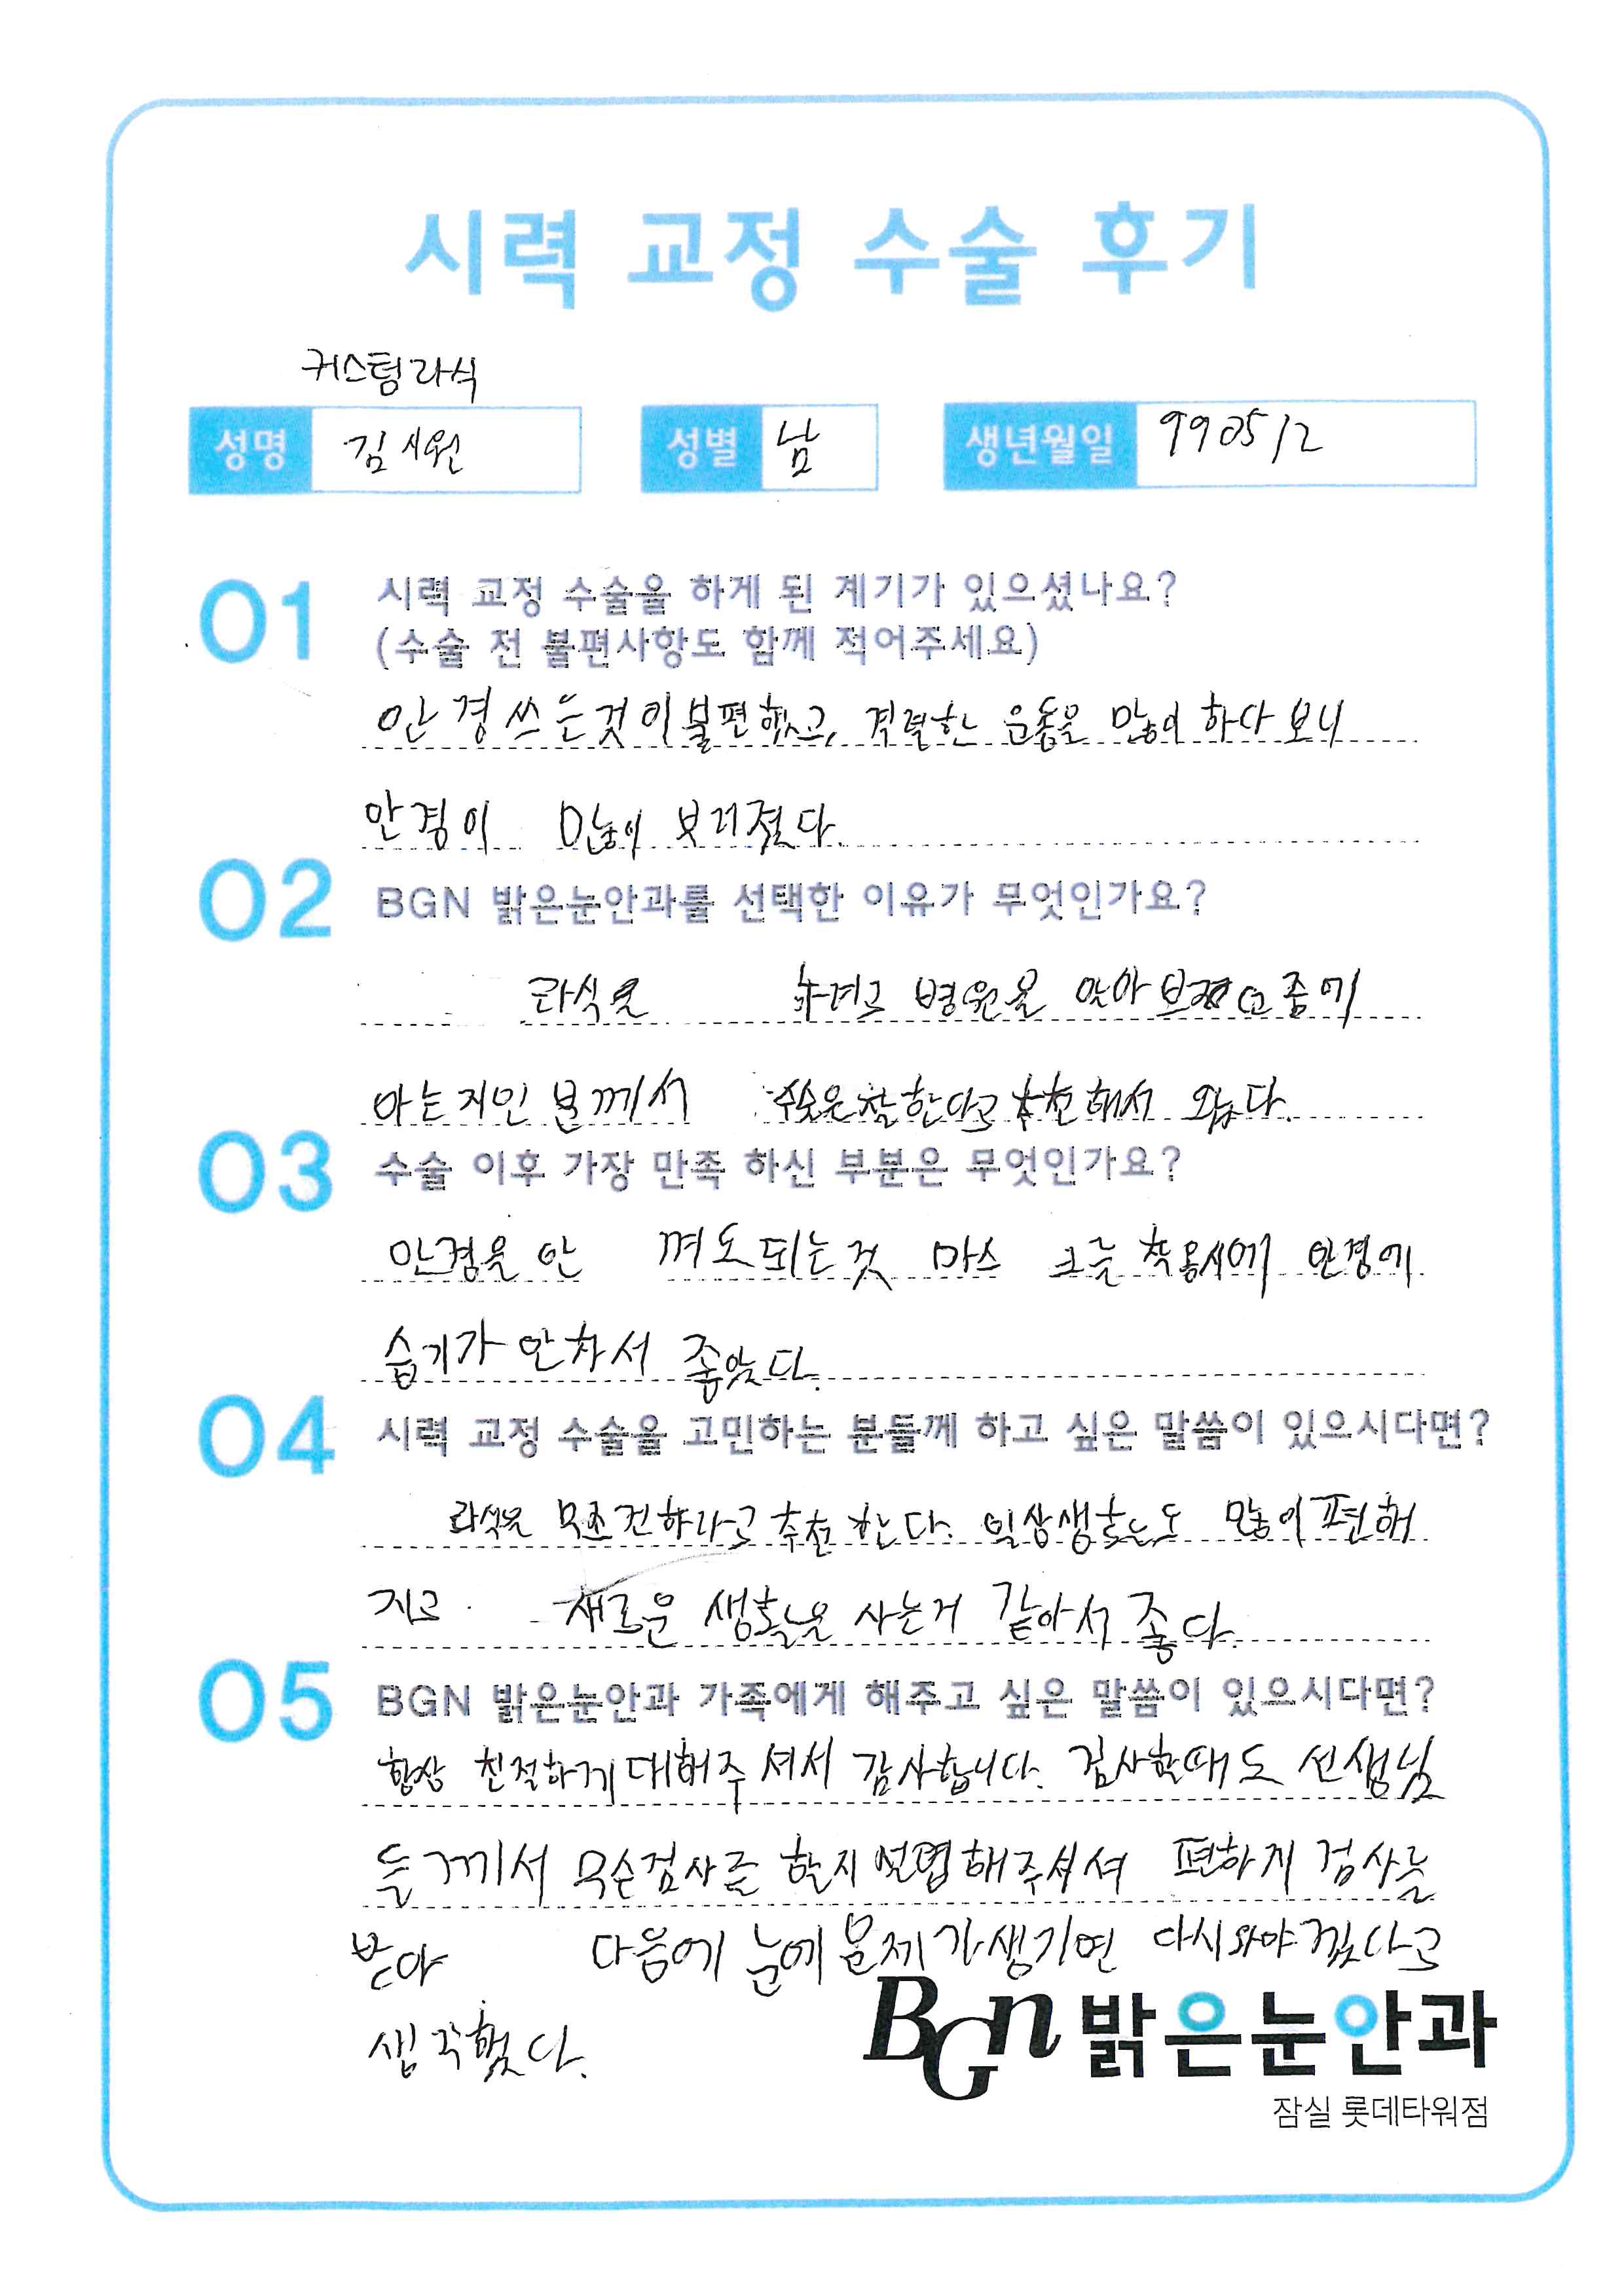 시력 교정 수술 후기
커스텀라식
성명 김시원 성별 남 생년월일 990512
01 시력 교정 수술을 하게 된 계기가 있으셨나요?
(수술 전 불편사항도 함께 적어주세요)
안경쓰는것이불편했고, 격렬한 운동을 많이 하다 보니
안경이 많이 부러졌다.
02 BGN 밝은눈안과를 선택한 이유가 무엇인가요?
라식을 하려고 병원을 알아 중에
아는지인 분께서 수술은잘한다고 추천해서 왔다.
03 수술 이후 가장 만족 하신 부분은 무엇인가요?
안경을 안 껴도되는것 마스크를 착용시에 안경에
습기가 안차서 좋았다.
04 시력 교정 수술을 고민하는 분들께 하고 싶은 말씀이 있으시다면?
라식은 무조건하라고 추천한다. 일상생활도 많이편해
지고 새로운 생활을 사는거 같아서 좋다.
05 BGN 밝은눈안과 가족에게 해주고 싶은 말씀이 있으시다면?
항상 친절하게대해주셔서 감사합니다. 검사할때도 선생님
들께서 무슨검사를 할지설명해주셔서 편하게 검사를
받아 다음에 눈에문제가생기면 다시와야겠다고
생각했다.
BGn 밝은눈안과
잠실 롯데타워점